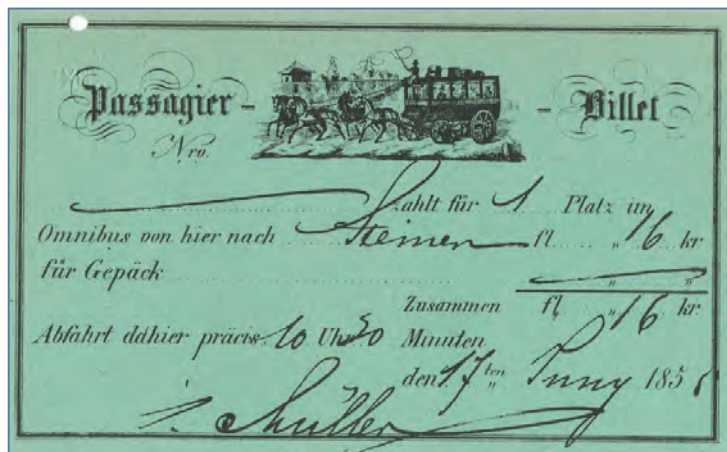 Passagier - - Billet
Nro.
zahlt für 1 Platz im
Omnibus von hier nach Steinen fl. " 16 kr
für Gepäck " "
Zusammen fl. " 16 kr.
Abfahrt dahier präcis 10 Uhr 30 Minuten
den 17 ten " Juny 185
Müller